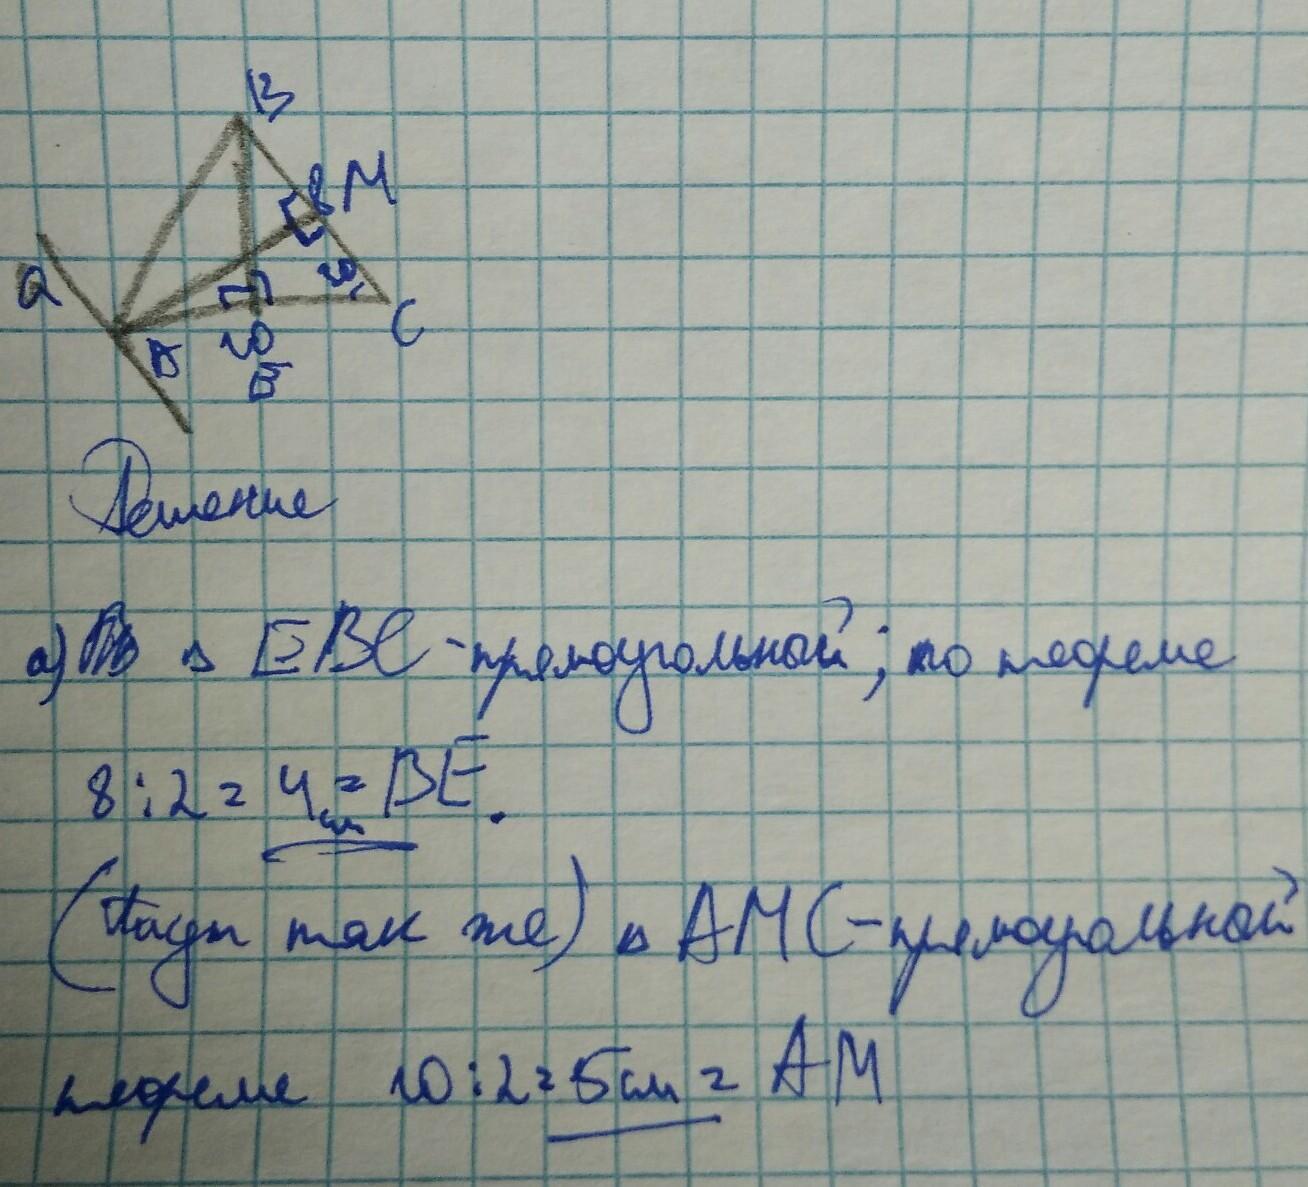 В
8 М
a
30
С
А 10
Е
Решение
а) △ EBC - прямоугольной; по теореме
8 : 2 = 4 см = BE.
( так же) △ AMC - прямоугольной
теореме 10 : 2 = 5 см = AM